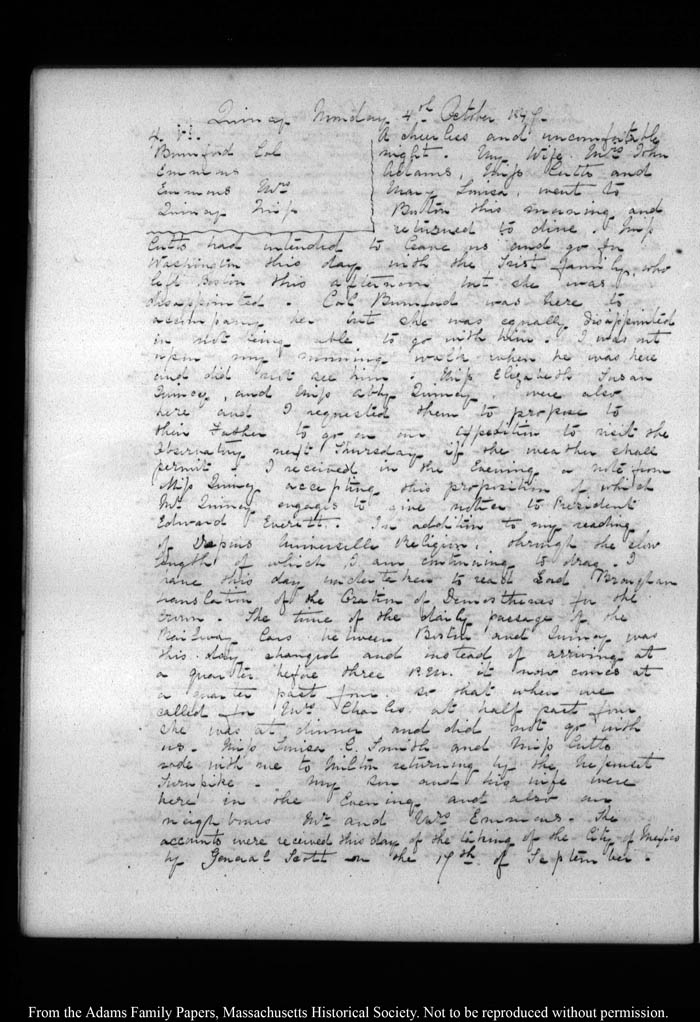 Quincy Monday 4th October 1847.
4. V:I.
Bumford Col
Emmons
Emmons Mrs
Quincy Miss
A cheerless and uncomfortable
night. My Wife, Mrs John
Adams, Miss Cutts and
Mary Louisa, went to
Boston this morning and
returned to dine. Miss
Cutts had intended to leave us and go for
Washington this day with the Trist family, who
left Boston this afternoon but she was
disappointed. Col Bumford was here to
accompany her but she was equally disappointed
in not being able to go with him. I was out
upon my morning walk when he was here
and did not see him. Miss Elizabeth Susan
Quincy, and Miss Abby Quincy, were also
here and I requested them to propose to
their Father to go on our expedition to visit the
Observatory next Thursday if the weather shall
permit. I received in the Evening a note from
Miss Quincy accepting this proposition of which
Mr Quincy engages to give notice to President
Edward Everett. In addition to my reading
of Dupuis Universelle Religion, through the slow
length of which I am continuing to drag, I
have this day undertaken to read Lord Brougham
translation of the Oration of Demosthenes for the
crown. The time of the daily passage of the
Railway Cars between Boston and Quincy was
this day changed and instead of arriving at
a quarter before three P.M. it now comes at
a quarter past four. so that when we
called for Mrs Charles at half past four
she was at dinner and did not go with
us. Miss Louisa C. Smith and Miss Cutts
rode with me to Milton returning by the Neponset
Turnpike. My son and his wife were
here in the Evening and also our
neighbours Mr and Mrs Emmons. The
accounts were received this day of the taking of the City of Mexico
by General Scott on the 14th of September.
From the Adams Family Papers, Massachusetts Historical Society. Not to be reproduced without permission.